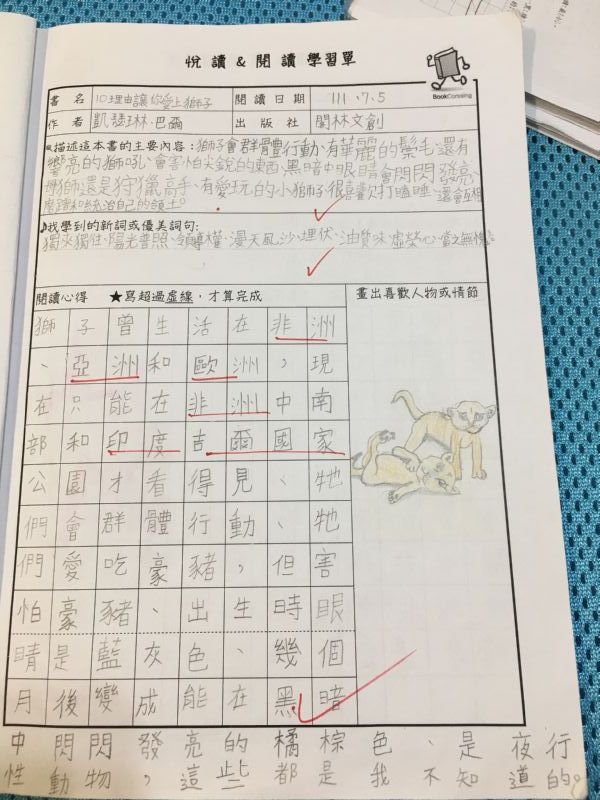 悅讀 & 閱讀 學習單
BookCrossing
書名 10理由讓你愛上獅子 閱讀日期 111.7.5
作者 凱瑟琳·巴爾 出版社 閣林文創
描述這本書的主要內容：獅子會群體行動、有華麗的鬃毛、還有
響亮的獅吼、會害怕尖銳的東西、黑暗中眼睛會閃閃發亮、
獅還是狩獵高手、有愛玩的小獅子很喜歡打瞌睡、還會互相
磨蹭和統治自己的領土。
我學到的新詞或優美詞句：
獨來獨往、陽光普照、領導權、漫天風沙、埋伏、油質味、虛榮心、當之無愧。
閱讀心得 ★寫超過虛線，才算完成 畫出喜歡人物或情節
獅子曾生活在非洲
、亞洲和歐洲，現
在只能在非洲中南
部和印度吉爾國家
公園才看得見、牠
們會群體行動、牠
們愛吃豪豬，但害
怕豪豬、出生時眼
睛是藍灰色、幾個
月後變成能在黑暗
中閃閃發亮的橘棕色、是夜行
性動物，這些都是我不知道的。